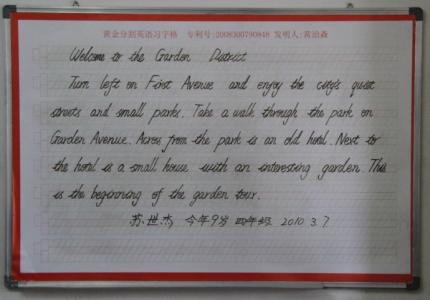 黄金分割英语习字格 专利号:2008300790848 发明人:黄治森
Welcome to the Garden District
Turn left on First Avenue and enjoy the city's quiet
streets and small parks. Take a walk through the park on
Garden Avenue. Across from the park is an old hotel. Next to
the hotel is a small house with an interesting garden. This
is the beginning of the garden tour.
苏世杰 今年9岁 四年级 2010 3.7